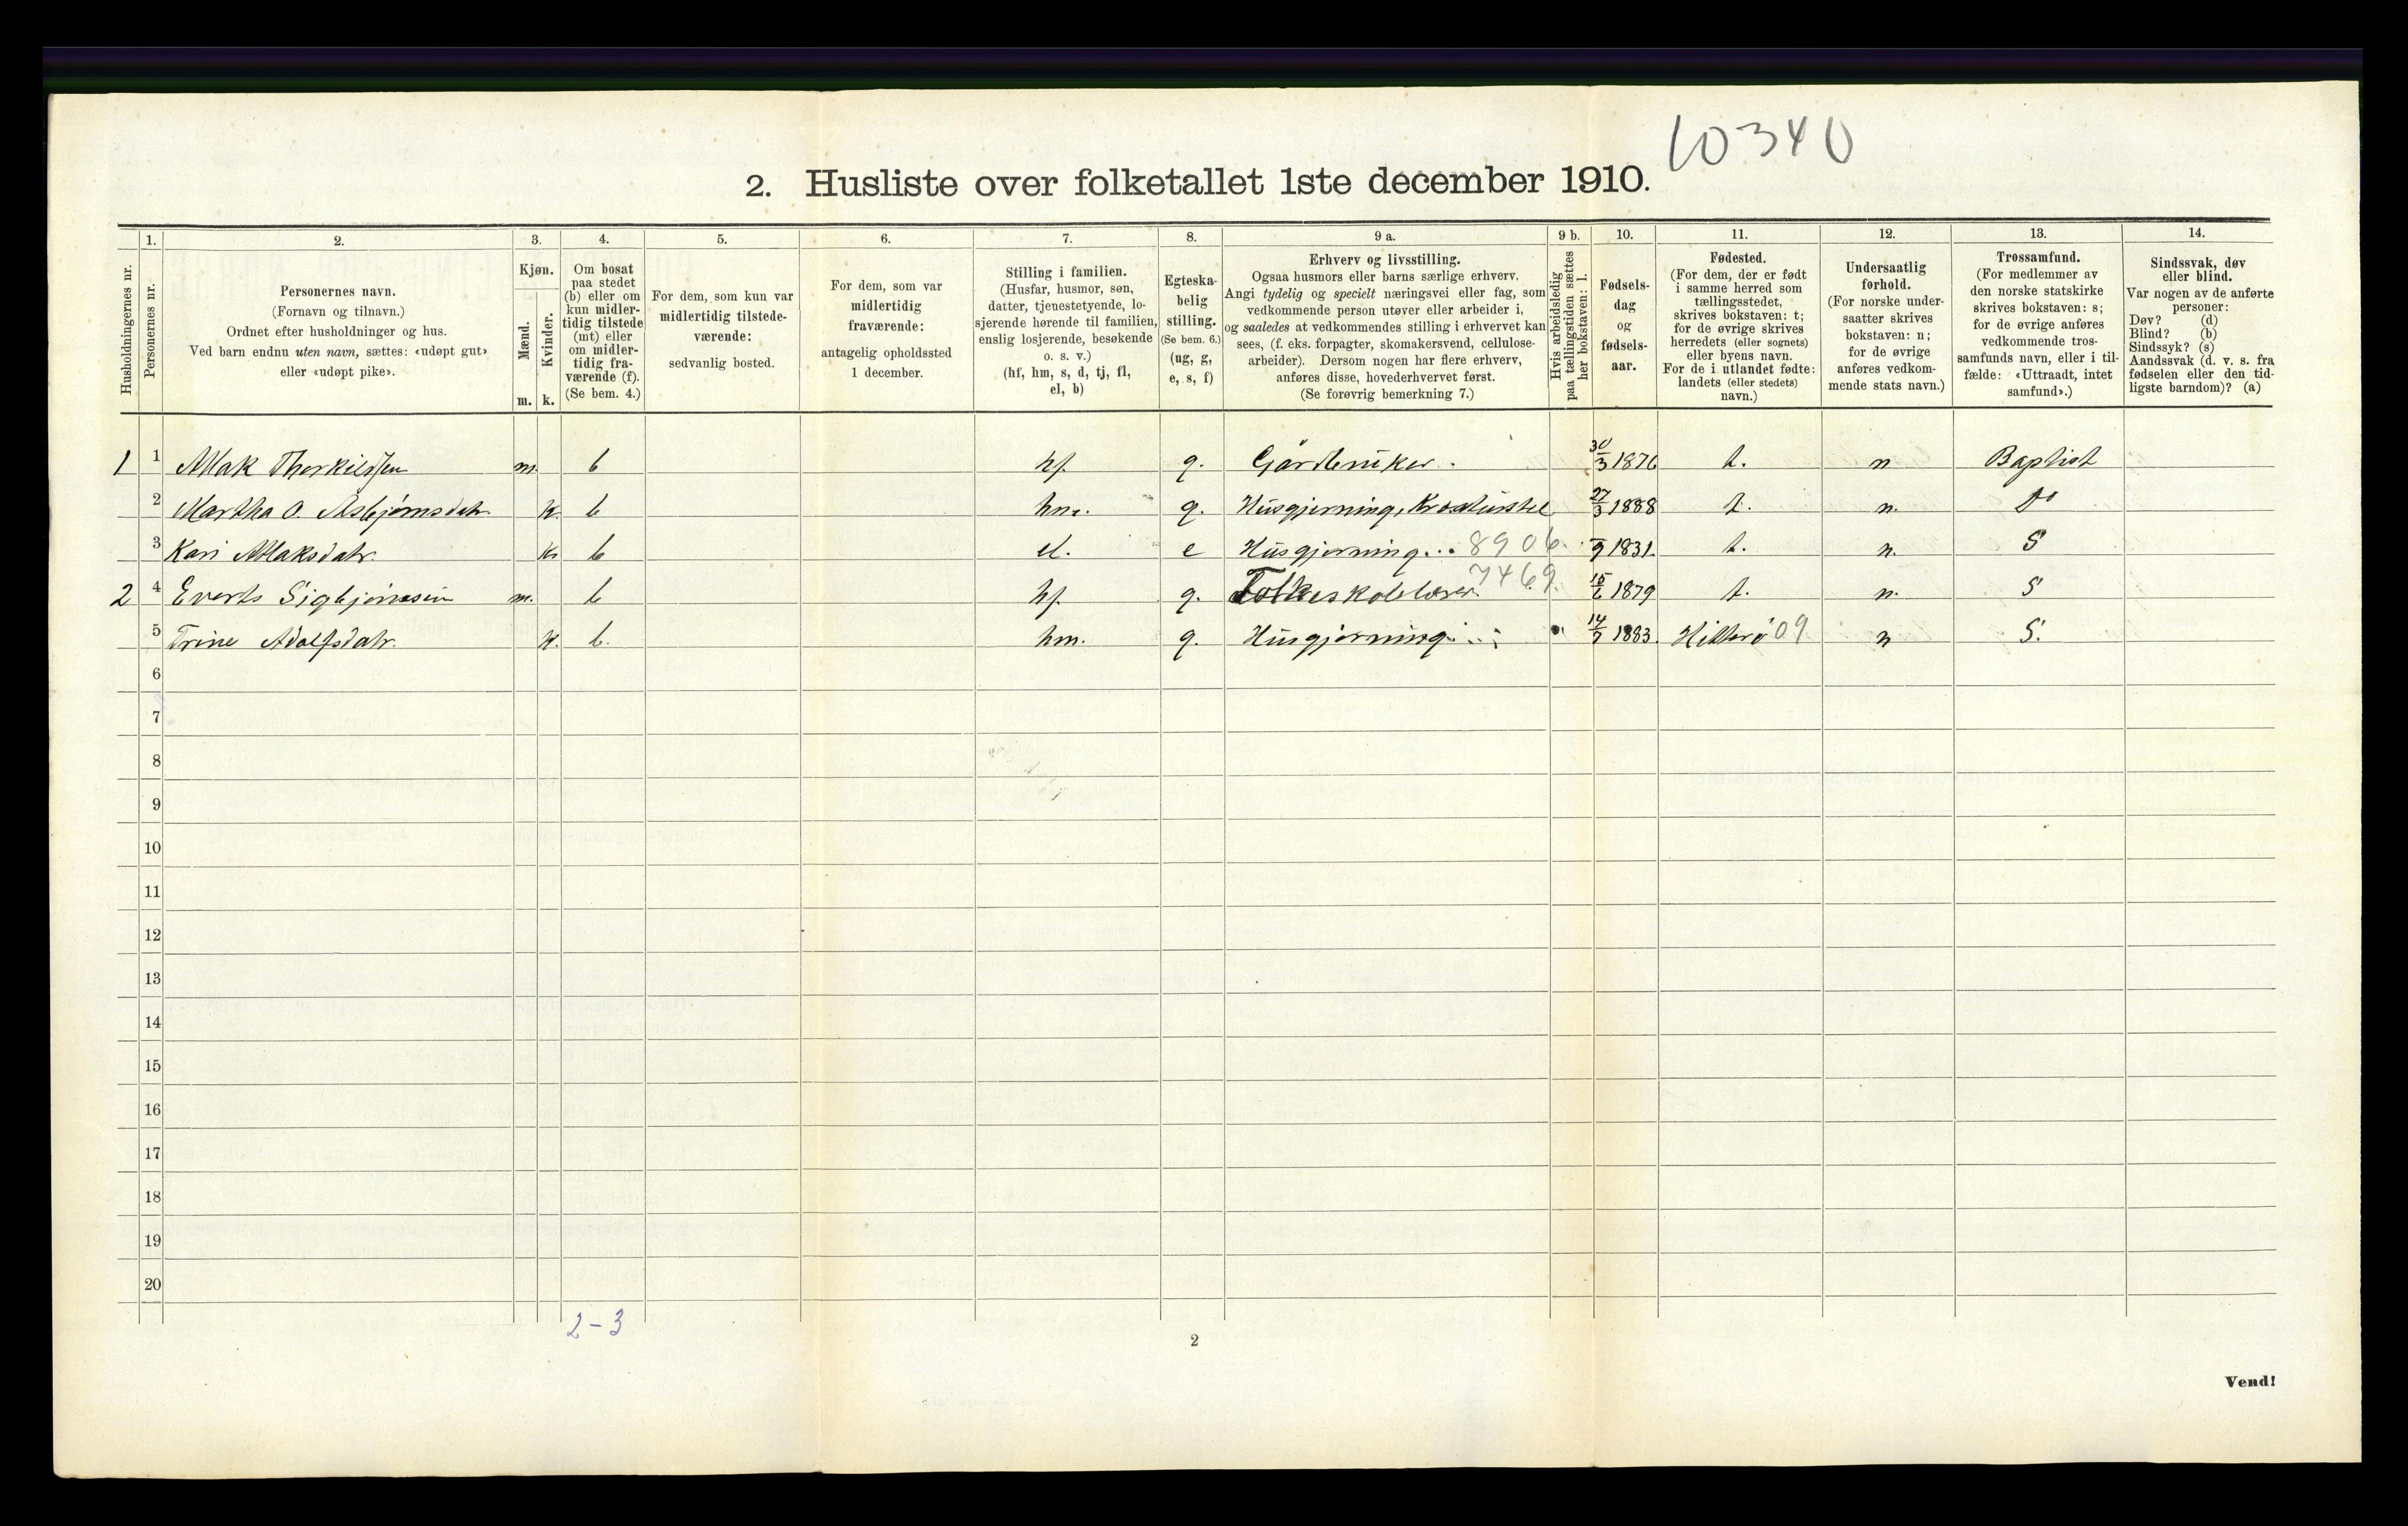 10340
2. Husliste over folketallet 1ste december 1910.
Husholdningernes nr.
1.
Personernes nr.
2.
Personernes navn.
(Fornavn og tilnavn.)
Ordnet efter husholdninger og hus.
Ved barn endnu uten navn, sættes: «udøpt gut»
eller «udøpt pike».
3.
Kjøn.
Mænd.
Kvinder.
m. k.
4.
Om bosat
paa stedet
(b) eller om
kun midler-
tidig tilstede
(mt) eller
om midler-
tidig fra-
værende (f).
(Se bem. 4.)
5.
For dem, som kun var
midlertidig tilstede-
værende:
sedvanlig bosted.
6.
For dem, som var
midlertidig
fraværende:
antagelig opholdssted
1 december.
7.
Stilling i familien.
(Husfar, husmor, søn,
datter, tjenestetyende, lo-
sjerende hørende til familien,
enslig losjerende, besøkende
o. s. v.)
(hf, hm, s, d, tj, fl,
el, b)
8.
Egteska-
belig
stilling.
(Se bem. 6.)
(ug, g,
e, s, f)
9 a.
Erhverv og livsstilling.
Ogsaa husmors eller barns særlige erhverv.
Angi tydelig og specielt næringsvei eller fag, som
vedkommende person utøver eller arbeider i,
og saaledes at vedkommendes stilling i erhvervet kan
sees, (f. eks. forpagter, skomakersvend, cellulose-
arbeider). Dersom nogen har flere erhverv,
anføres disse, hovederhvervet først.
(Se forøvrig bemerkning 7.)
9 b.
Hvis arbeidsledig
paa tællingstiden sættes
her bokstaven: l.
10.
Fødsels-
dag
og
fødsels-
aar.
11.
Fødested.
(For dem, der er født
i samme herred som
tællingsstedet,
skrives bokstaven: t;
for de øvrige skrives
herredets (eller sognets)
eller byens navn.
For de i utlandet fødte:
landets (eller stedets)
navn.)
12.
Undersaatlig
forhold.
(For norske under-
saatter skrives
bokstaven: n;
for de øvrige
anføres vedkom-
mende stats navn.)
13.
Trossamfund.
(For medlemmer av
den norske statskirke
skrives bokstaven: s;
for de øvrige anføres
vedkommende tros-
samfunds navn, eller i til-
fælde: «Uttraadt, intet
samfund».)
14.
Sindssvak, døv
eller blind.
Var nogen av de anførte
personer:
Døv? (d)
Blind? (b)
Sindssyk? (s)
Aandssvak (d. v. s. fra
fødselen eller den tid-
ligste barndom)? (a)
1 1 Thorkildsen m. b hf. g. Gårdbruker. 30/3 1876 t. n Baptist
2 Martha O. Asbjørnsdatr. k. b hm. g. Husgjerning, 27/3 1888 t. n. Do
3 Kari k. b el. e Husgjerning... 8906 /9 1831. t. n. S
2 4 Everts Sigbjørnsen m. b hf. g. Folkeskolelærer. 7469 15/6 1879 t. n. S
5 Trine Adolfsdatr. k. b. hm. g. Husgjerning 14/7 1883. Hitterø 09 n S.
6
7
8
9
10
11
12
13
14
15
16
17
18
19
20
2-3
2
Vend!